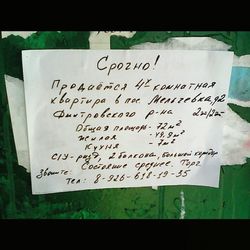 Срочно!
Продаётся 4х комнатная
квартира в пос. Мельчевка, д2
Дмитровского р-на 2эт/2эт
Общая площадь - 72 м²
Жилая - 49,9 м²
Кухня - 7 м²
С/У-разд, 2 балкона, большой коридор
Состояние среднее. Торг
Звоните:
Тел: 8-926-638-19-35